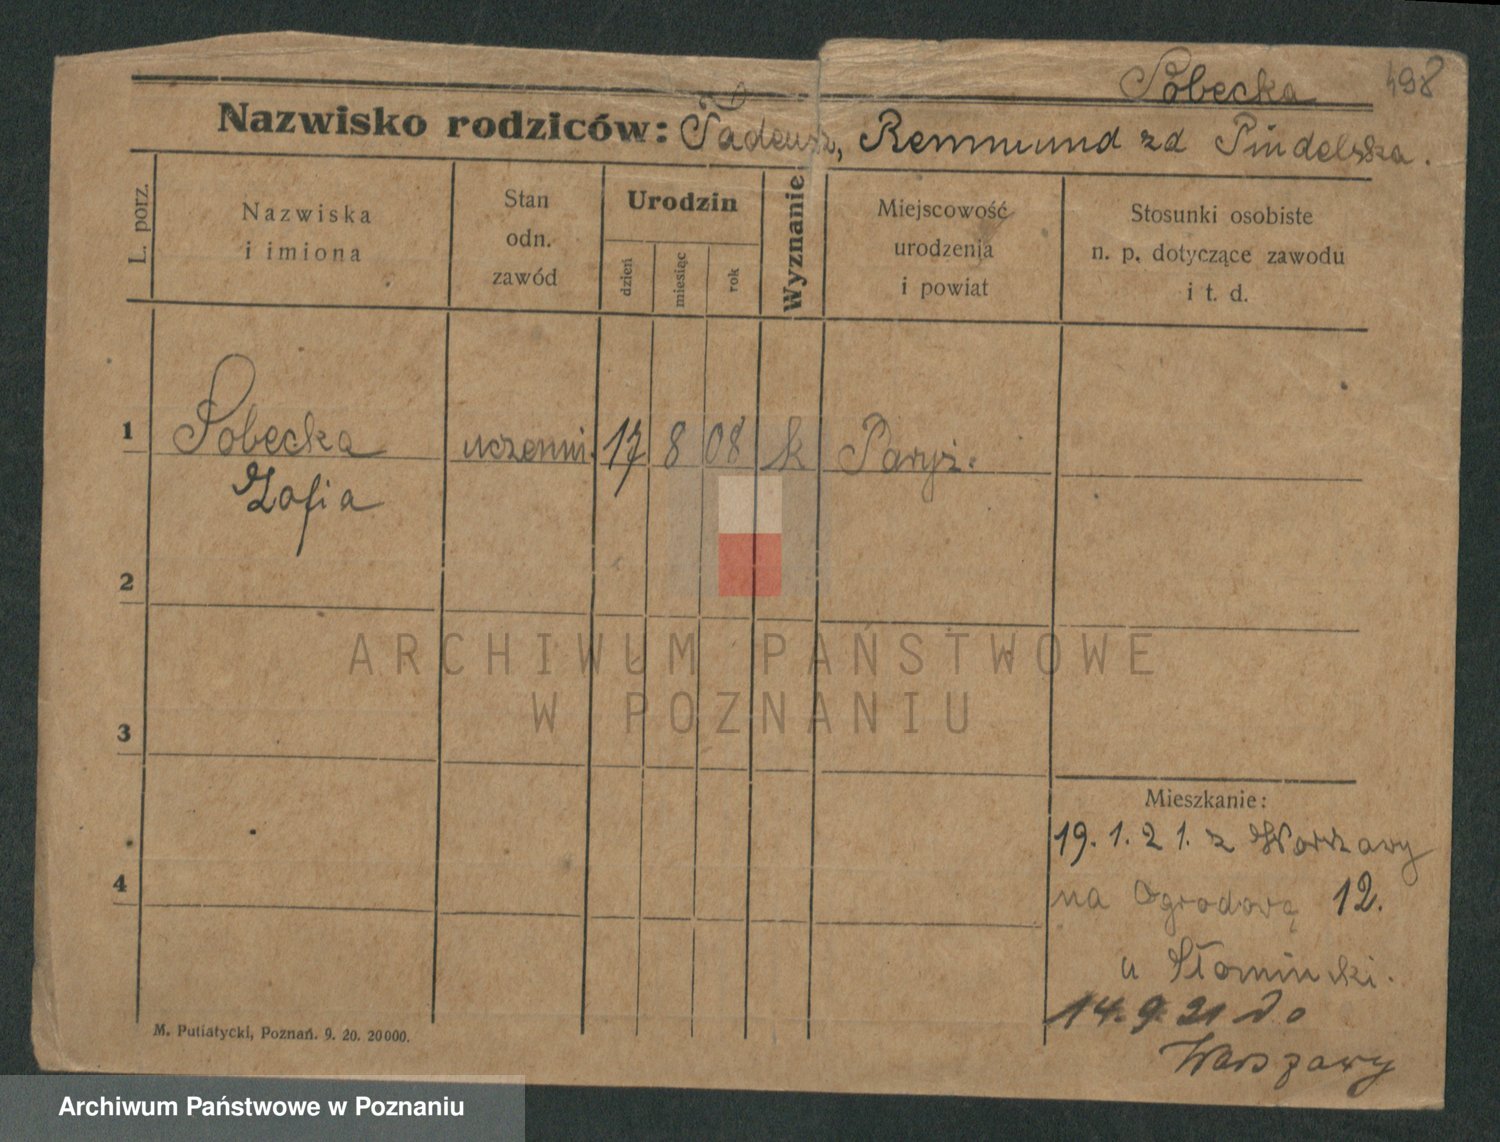 Sobecka 498
Nazwisko rodziców: Tadeusz, Remmund zd Pindelska.
L. porz.
Nazwiska
i imiona
Stan
odn.
zawód
Urodzin
dzień
miesiąc
rok
Wyznanie
Miejscowość
urodzenia
i powiat
Stosunki osobiste
n. p. dotyczące zawodu
i t. d.
1 Sobecka uczenni. 17 8 08 k Paryż.
Zofia
2
ARCHIWUM PAŃSTWOWE
W POZNANIU
3
Mieszkanie:
19. 1. 21. z Warszawy
4
na Ogrodową 12.
u Słomiński.
14. 9. 21 do
Warszawy
M. Putiatycki, Poznań. 9. 20. 20000.
Archiwum Państwowe w Poznaniu